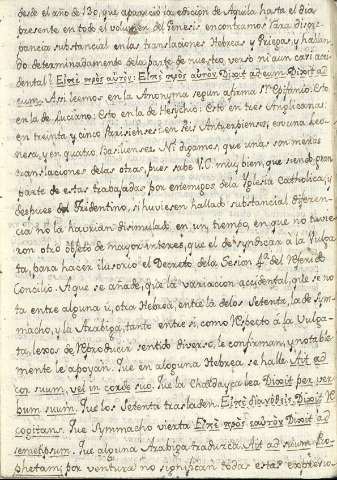 desde el año de 130, que apareció la edicion de Aquila hasta el dia
presente en todo el volumen del Genesis encontramos rara discre-
pancia substancial en las translaciones Hebreas, y Griegas, y hallan-
do determinadamente de la parte de nuestro verso ni aun casi acci-
dental? Εἶπε πρὸς αὐτὸν: Εἶπε πρὸς αὐτὸν Dixit ad eum Dixit ad
eum. Asi leemos en la Anonyma segun afirma Sn. Epifanio: Esto
en la de Luciano: Esto en la de Hesychio: Esto en tres Anglicanas:
en treinta y cinco Parisienses: en seis Antuerpienses, en una
y en quatro Basilienses. Ni digamos, que una son meras
translaciones de las otras, pues sabe V.C. mui bien, que siendo gran
parte de estas trabajadas por enemigos de la Yglesia Catholica, y
despues del Tridentino, si huviesen hallado substancial diferen-
cia no la havrian disimulado, en un tiempo, en que no tuvie-
ron otro objeto de mayor interes, que el de syndicar á la Vulga-
ta, para hacer ilusorio el Decreto de la Sesion 4ª. del
Concilio. A que se añade, que la variacion accidental, que se no-
ta entre alguna, ú otra Hebrea, entre la de los Setenta, la de Sym-
macho, y la Arabiga, tanto entre si, como respecto á la Vulga-
ta, lexos de reproducir sentido diverso, le confirman, y notable-
mente le apoyan. Que en alguna Hebrea se halle Ait ad
cor suum, vel in corde suo. Que la Chaldayca lea Dixit per ver-
bum suum. Que los Setenta trasladen Εἶπε διανοηθεὶς Dixit re-
cogitans. Que Symmacho vierta Εἶπε πρὸς ἑαυτὸν Dixit ad
semetipsum. Que alguna Arabiga traduzca Ait ad suum Pro-
phetam; por ventura no significan todas estas expresio-